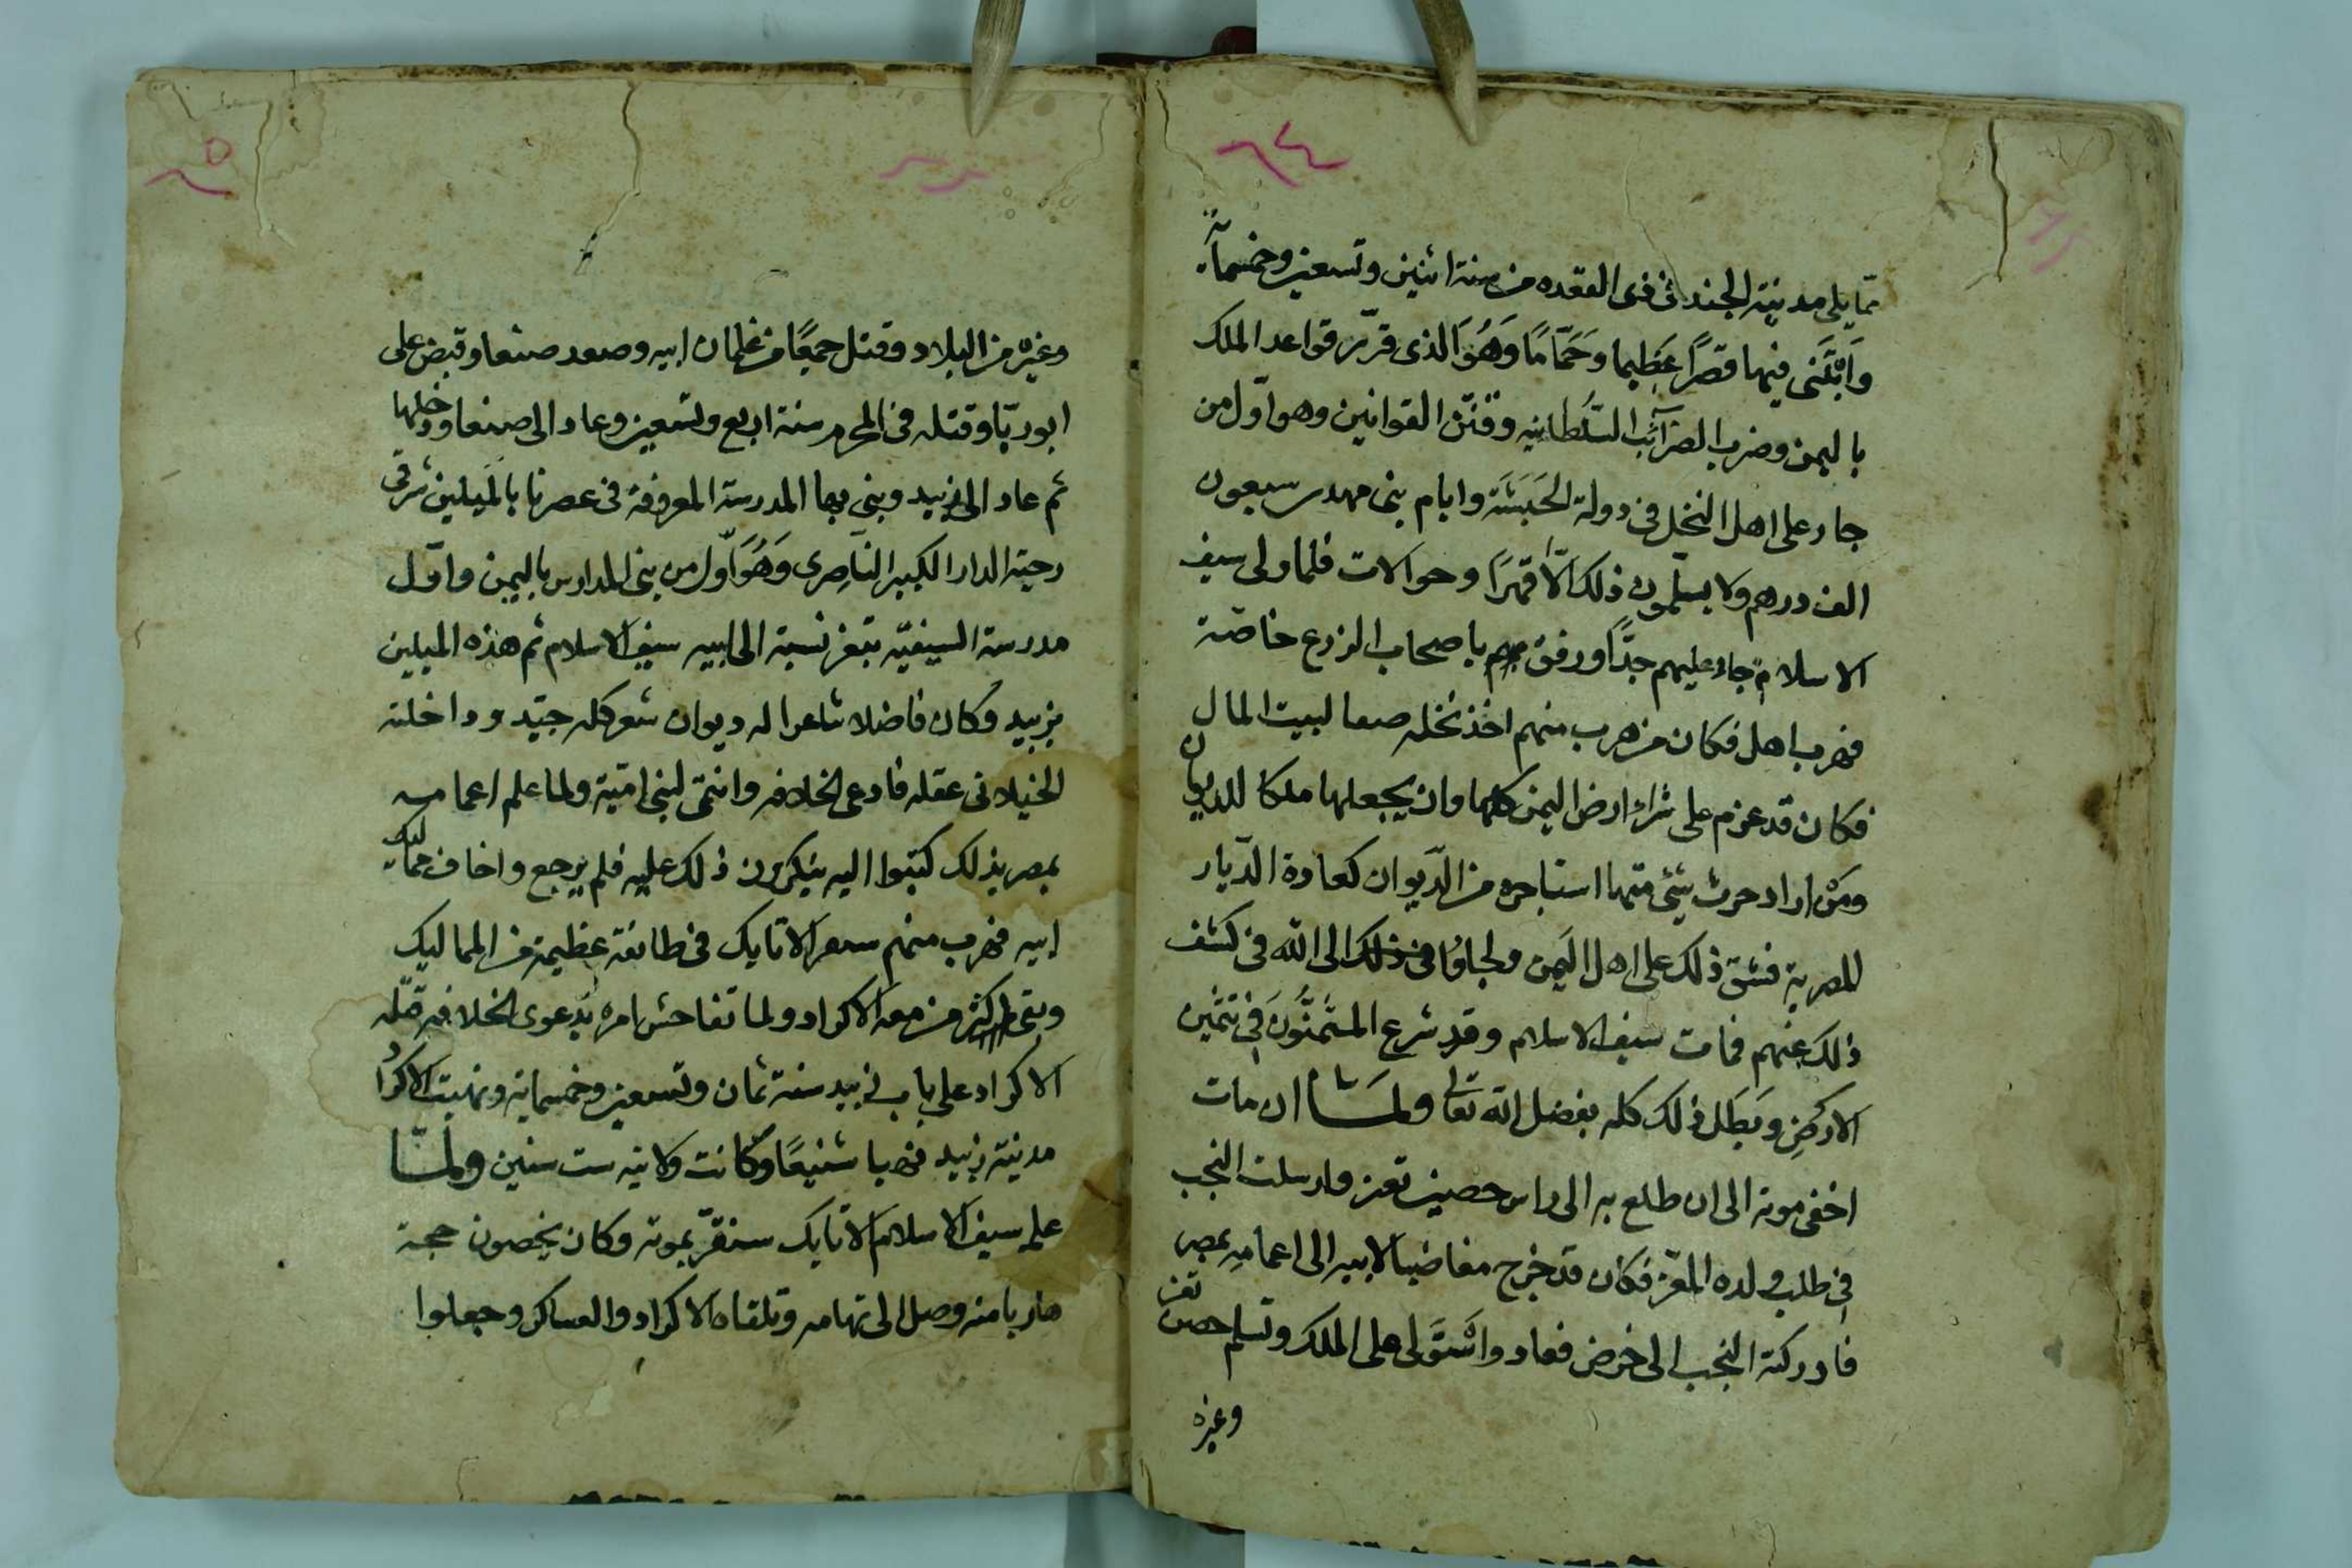 ٢٤
مما يلى مدينة الجند فى ذى القعده من سنة اثنين وتسعين وخمسمآئة
وَابْتَنى فيها قصرًا عَظِيما وحَمّامًا وَهُوَ الذى قرّر قواعد الملك
باليمن وضرب الضرآئب السُّلطانيه وقنّن القوانين وهو اوّل من
جار على اهل النخل فى دولة الحَبَشَة وايام بنى مهدى سبعون
الف درهم ولا يسلّمون ذلك الّا قهرًا وحوالات فلما ولى سيف
الاسلام جار عليهم جدًّا ورفق باصحاب الزرع خاصّة
فهرب اهل فكان من هرب منهم اخذ نخله صفا لبيت المال
فكان قد عزم على شرآء ارض اليمن كلها وان يجعلها ملكا للديوان
ومَنْ اراد حرث شئ منها استاجره من الدّيوان كعادة الدّيار
المصرية فشق ذلك على اهل اليَمن ولجاؤا فى ذلك الى الله فى كشف
ذلك عنهم فمات سيف الاسلام وقد شرع المثَمّنُونَ فى تثمين
الارضِ وبَطَل ذلك كله بفضل الله تعالى ولمَّا ان مات
اخفى موته الى ان طلع به الى راس حصن تعز وارسلت النجب
فى طلب ولده المعزّ فكان قد خرج مغاضبا لابيه الى اعمامِه بمصر
فادركته النجب الى حرض فعاد واسْتَوَلى على الملك وتسلم حصن تعز
وغيره
٢٥
وغيره من البلاد وقتل جمعًا من غلمان ابيه وصعد صنعا وقبض على
ابوريّا وقتله فى المحرم سنة اربع وتسعين وعاد الى صنعا ودخلها
ثم عاد الى زبيد وبنى بها المدرسة المعروفة فى عصرنا بالميلين شرقى
رحبة الدار الكبير النّاصِرى وَهُوَ اوّل من بنى المدارس باليمن واوّل
مدرسة السيفيّه بتعز نسبة الى ابيه سيف الاسلام ثم هذه الميلين
بزبيد وكان فاضلا شاعرا له ديوان شعر كله جيّد وداخلته
الخيلا فى عقله فادعى الخلافه وانتمى لبنى اميّة ولما علم اعمامه
بمصر بذلك كتبوا اليه ينكرون ذلك عليه فلم يرجع واخاف مماليك
ابيه فهرب منهم سنقر الاتابك فى طائفة عظيمة من المماليك
وبقى اكثر من معه الاكراد ولما تفاحش امره بدعوى الخلافه قتله
الاكراد على باب زبيد سنة ثمان وتسعين وخمسماية ونهبت الاكراد
مدينة زبيد نهبا شنيعًا وكانت ولايته ست سنين ولمّا
علم سيف الاسلام الاتابك سنقرّ بموته وكان بحصون حجة
هاربا منه وصل الى تهامه وتلقاه الاكراد والعساكر وجعلوا